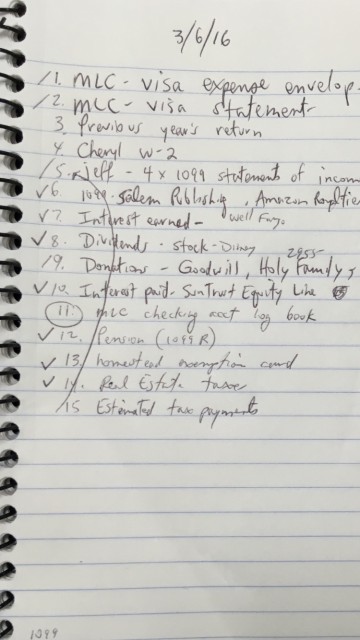 3/6/16
/1. MLC - visa expense envelop
/2. MLC - visa statement
3 Previous year's return
4 Cheryl W-2
/5. Jeff - 4 x 1099 statements of incom
✓6 1099 - Salem Publishing, Amazon Royaltie
✓7. Interest earned - Well Fargo
✓8. Dividends - stock - Disney
2955-
/9. Donations - Goodwill, Holy Family,
✓10. Interest paid - SunTrust Equity Line
11. MLC checking acct log book
✓12. Pension (1099R)
✓13. homestead exemption card
✓14. Real Estate taxes
/15 Estimated tax payments
1099